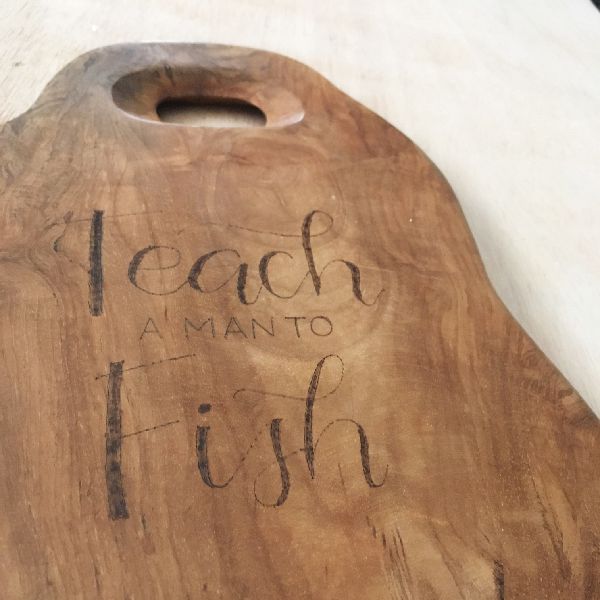 Teach
A MAN TO
Fish